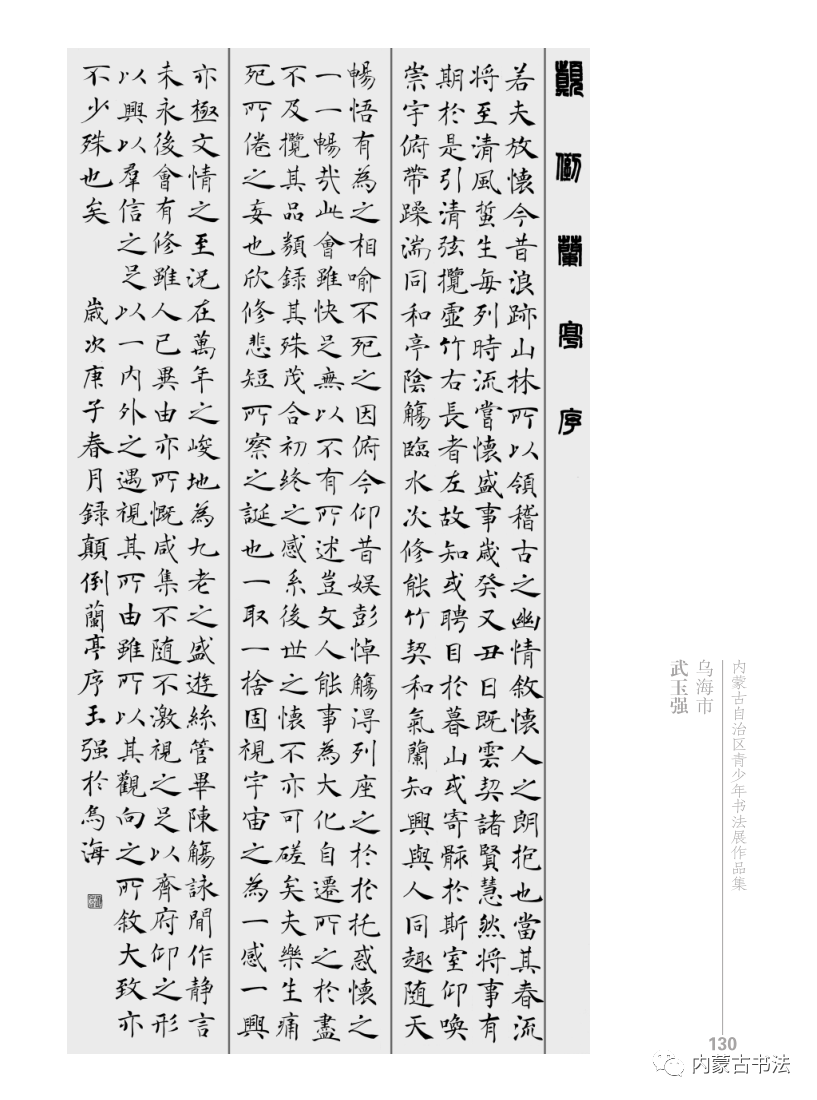 顛倒蘭亭序
若夫放懷今昔浪跡山林所以領稽古之幽情敘懷人之朗抱也當其春流
將至清風蜇生每列時流嘗懷盛事歲癸又丑日既雲契諸賢慧然將事有
期於是引清弦攬虛竹右長者左故知或聘目於暮山或寄骸於斯室仰喚
崇宇俯帶躁湍同和亭陰觴臨水次修能竹契和氣蘭知興與人同趣隨天
暢悟有為之相喻不死之因俯今仰昔娛彭悼觴得列座之於於托惑懷之
一一暢哉此會雖快足無以不有所述豈文人能事為大化自遷所之於盡
不及攬其品類錄其殊茂合初終之感系後世之懷不亦可磋矣夫樂生痛
死所倦之妄也欣修悲短所察之誕也一取一捨固視宇宙之為一感一興
亦極文情之至況在萬年之峻地為九老之盛遊絲管畢陳觴詠閒作靜言
未永後會有修雖人已異由亦所慨咸集不隨不激視之足以齊府仰之形
以興以羣信之足以一內外之遇視其所由雖所以其觀向之所敘大致亦
不少殊也矣 歲次庚子春月錄顛倒蘭亭序玉强於烏海
内蒙古自治区青少年书法展作品集
乌海市
武玉强
130
内蒙古书法